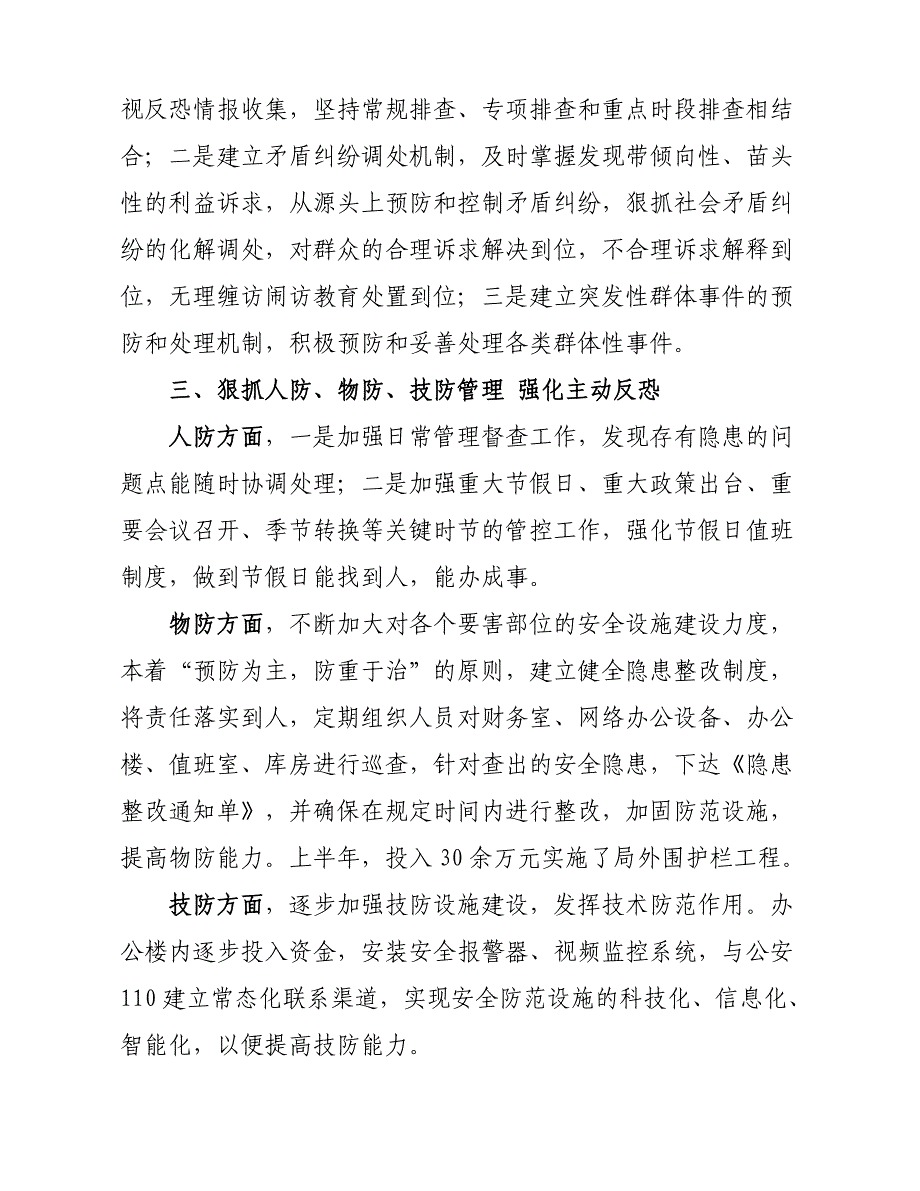 视反恐情报收集，坚持常规排查、专项排查和重点时段排查相结
合；二是建立矛盾纠纷调处机制，及时掌握发现带倾向性、苗头
性的利益诉求，从源头上预防和控制矛盾纠纷，狠抓社会矛盾纠
纷的化解调处，对群众的合理诉求解决到位，不合理诉求解释到
位，无理缠访闹访教育处置到位；三是建立突发性群体事件的预
防和处理机制，积极预防和妥善处理各类群体性事件。
三、狠抓人防、物防、技防管理 强化主动反恐
人防方面，一是加强日常管理督查工作，发现存有隐患的问
题点能随时协调处理；二是加强重大节假日、重大政策出台、重
要会议召开、季节转换等关键时节的管控工作，强化节假日值班
制度，做到节假日能找到人，能办成事。
物防方面，不断加大对各个要害部位的安全设施建设力度，
本着“预防为主，防重于治”的原则，建立健全隐患整改制度，
将责任落实到人，定期组织人员对财务室、网络办公设备、办公
楼、值班室、库房进行巡查，针对查出的安全隐患，下达《隐患
整改通知单》，并确保在规定时间内进行整改，加固防范设施，
提高物防能力。上半年，投入 30 余万元实施了局外围护栏工程。
技防方面，逐步加强技防设施建设，发挥技术防范作用。办
公楼内逐步投入资金，安装安全报警器、视频监控系统，与公安
110 建立常态化联系渠道，实现安全防范设施的科技化、信息化、
智能化，以便提高技防能力。